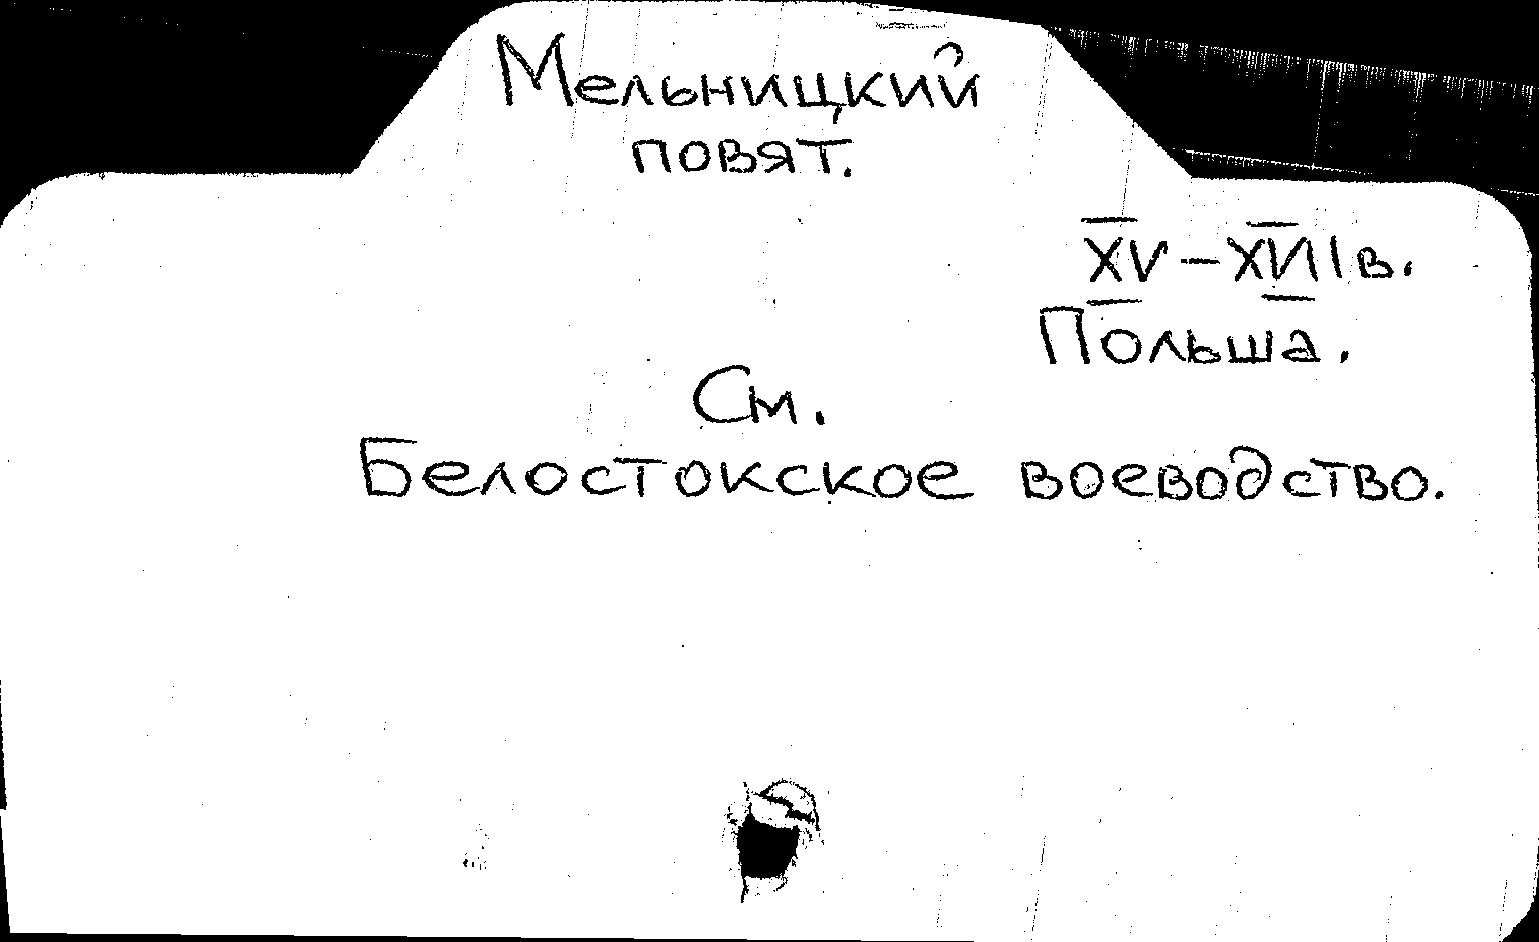 Мельницкий
повят.
XV – XVIII в.
Польша.
См.
Белостокское воеводство.